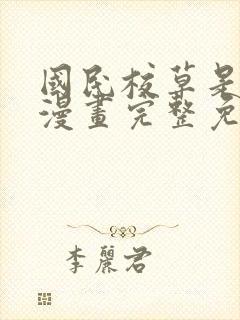 國民校草是
漫畫完整免
李麗君